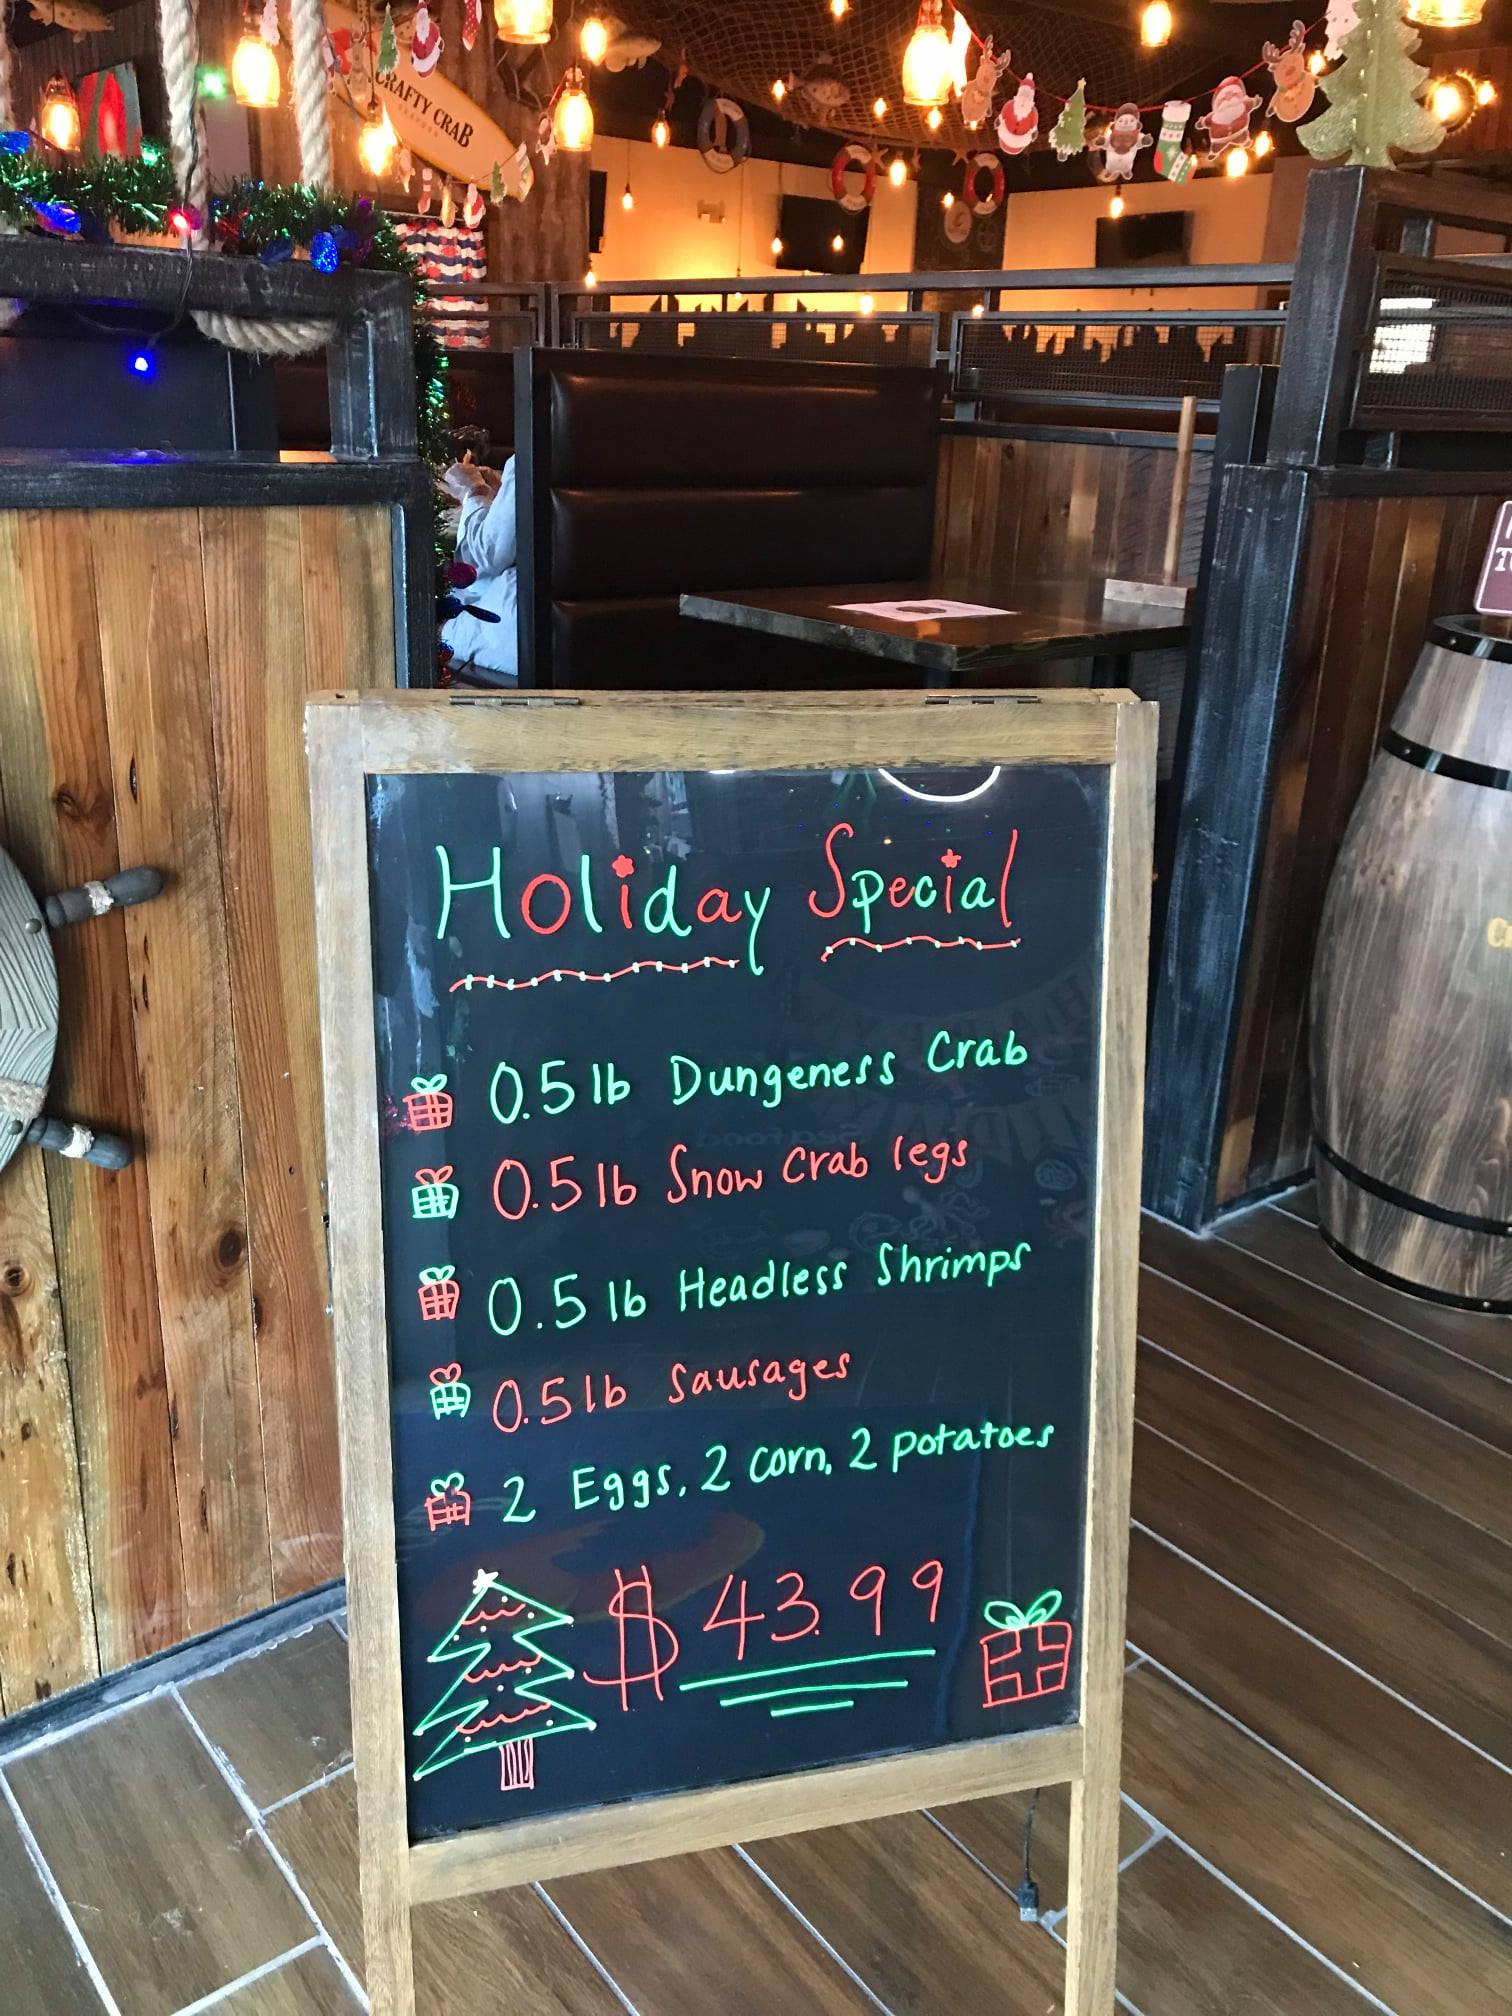 CRAFTY CRAB
Holiday Special
0.5 lb Dungeness Crab
0.5 lb Snow Crab legs
0.5 lb Headless Shrimps
0.5 lb Sausages
2 Eggs, 2 corn, 2 potatoes
$43.99